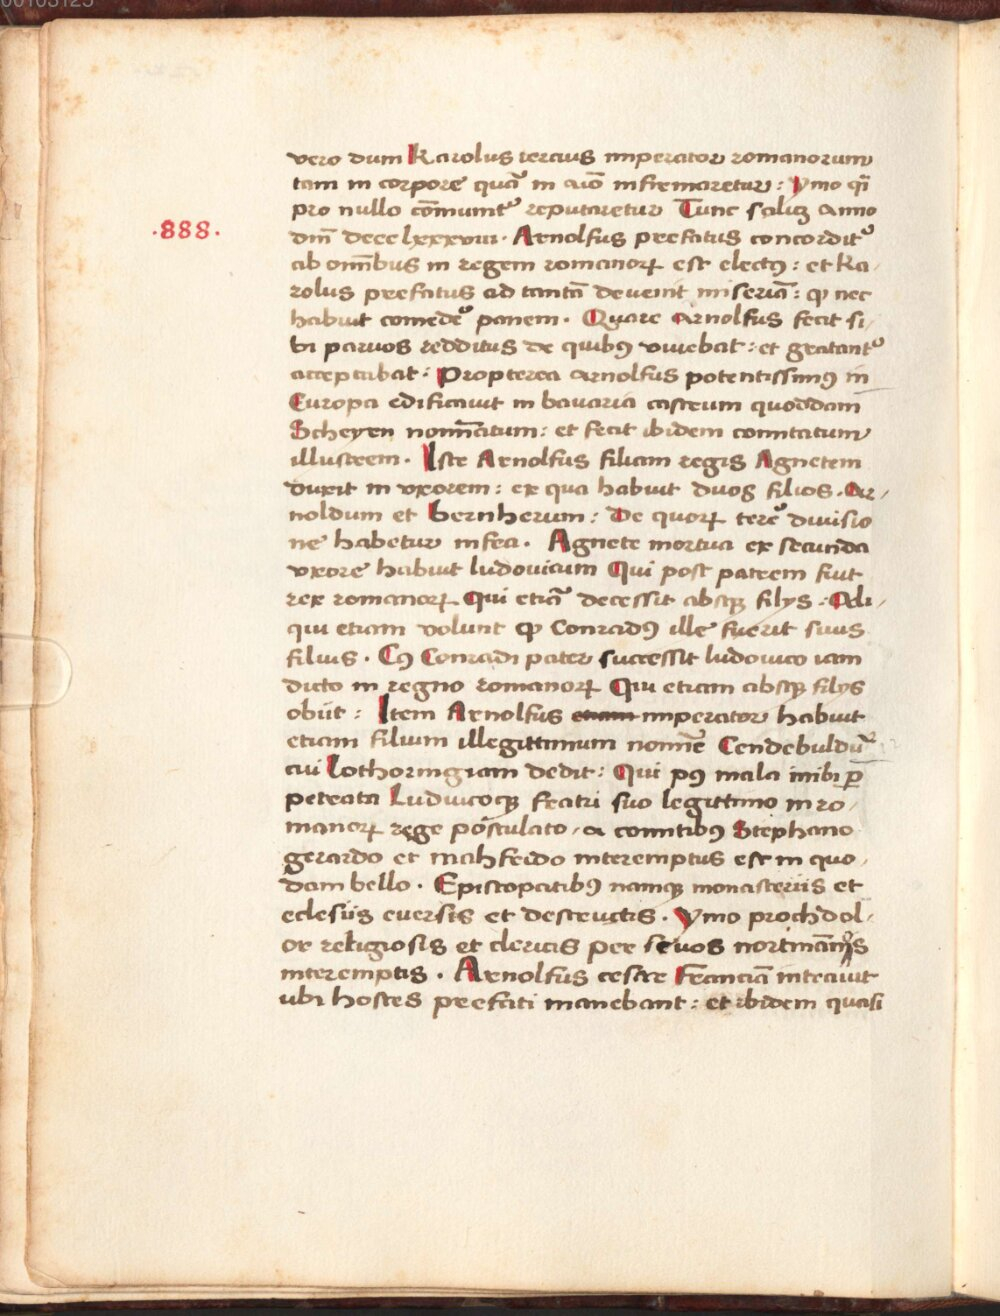 vero dum Karolus tercius imperator romanorum
tam in corpore quā in aīo infirmaretur : ymo qī
pro nullo cōmunitꝰ reputaretur Tunc scilicꝫ anno
.888.
dm̄ dccc lxxxviii. Arnolfus prefatus concorditꝰ
ab omībus in regem romanoꝝ est electꝰ : et Ka,
rolus prefatus ad tantā devenit miseriā : ꝙ nec
habuit comedeꝰ panem. Quare Arnolfus fecit si,
bi parvos redditus de quibꝰ vivebat : et gratantꝰ
acceptabat : Propterea Arnolfus potentissimꝰ in
Europa edificavit in bavaria castrum quoddam
Scheyen nomīatum : et fecit ibidem comitatum
illustrem. Iste Arnolfus filiam regis Agnetem
duxit in vxorem : ex qua habuit duos filios. Ar,
noldum et bernherum : De quoꝝ terꝰ divisio
ne habetur infra. Agnete mortua ex secunda
vxore habuit ludovicum Qui post patrem fuit
rex romanoꝝ Qui etiā decessit absqꝫ filys : Ali,
qui etiam volunt ꝙ Conradꝰ ille fuerit suus
filius. Cꝰ Conradi pater successit ludovico iam
dicto in regno romanoꝝ Qui etiam absqꝫ filys
obiit : Item Arnolfus etiam imperator habuit
etiam filium illegittimum nomīe Cendebuldū
cui Lothoringiam dedit : Qui pꝰ mala inibi ꝑ
petrata Luduicoqꝫ fratri suo legittimo in ro,
manoꝝ rege postulato, a comitibꝰ Stephano
gerardo et mahfrido interemptus est in quo,
dam bello. Episcopatibꝰ namqꝫ monasteriis et
eclesiis eversis et destructis. ymo prochdol,
or religiosis et clericis per sevos nortmānos
interemptis. Arnolfus cesar Franciā intravit
ubi hostes prefati manebant : et ibidem quasi